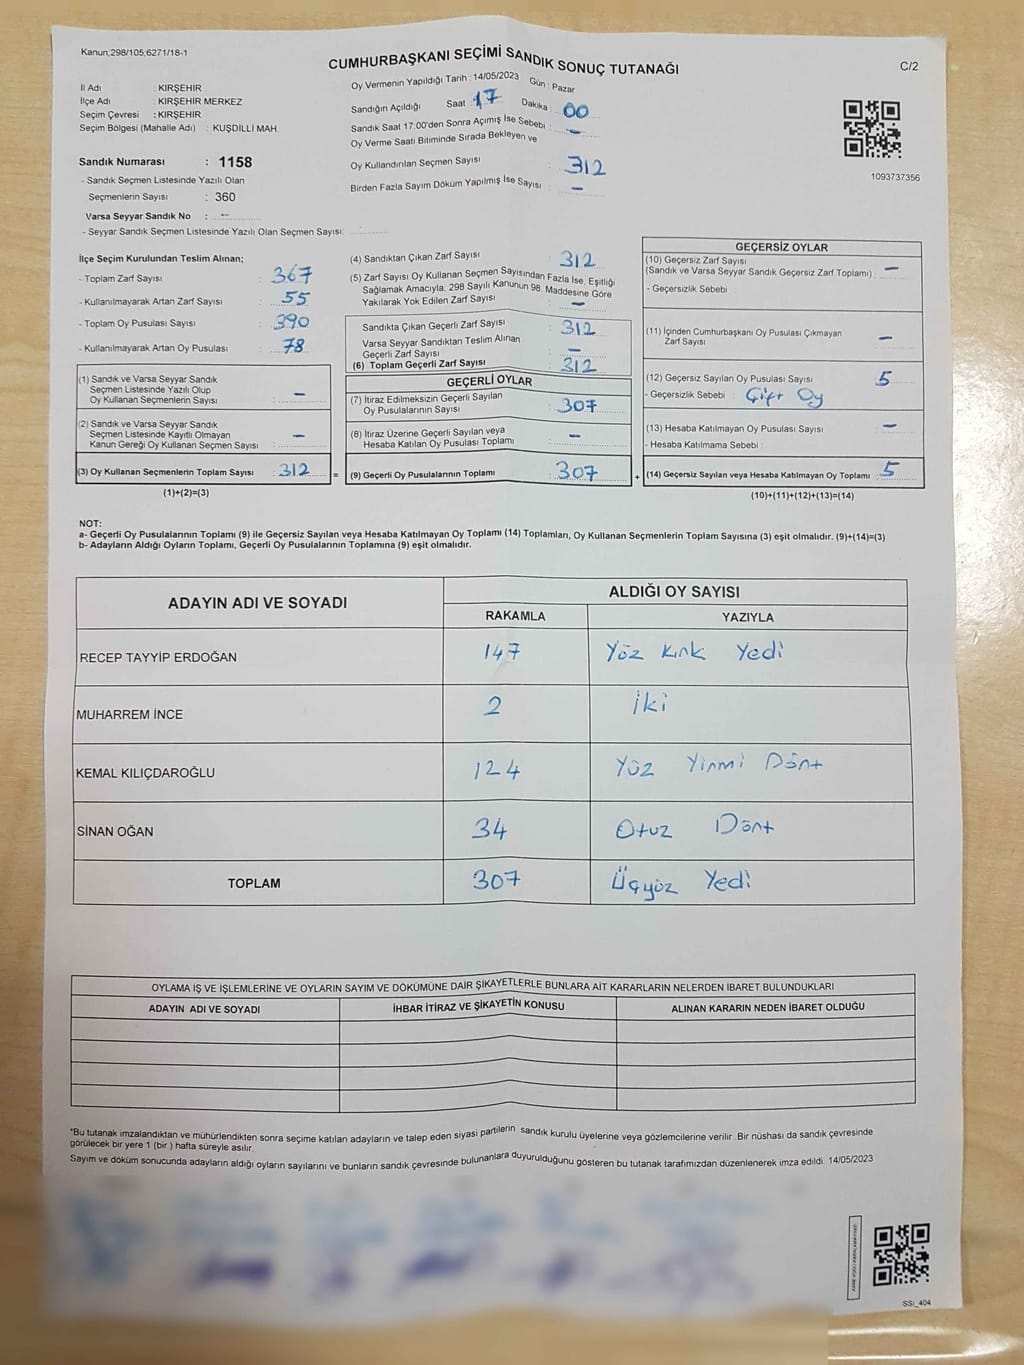 Kanun;298/105;6271/18-1
CUMHURBAŞKANI SEÇİMİ SANDIK SONUÇ TUTANAĞI
C/2
İl Adı : KIRŞEHİR
İlçe Adı : KIRŞEHİR MERKEZ
Seçim Çevresi : KIRŞEHİR
Seçim Bölgesi (Mahalle Adı) : KUŞDİLLİ MAH.
Sandık Numarası : 1158
- Sandık Seçmen Listesinde Yazılı Olan
Seçmenlerin Sayısı : 360
Varsa Seyyar Sandık No : -
- Seyyar Sandık Seçmen Listesinde Yazılı Olan Seçmen Sayısı:
Oy Vermenin Yapıldığı Tarih : 14/05/2023 Gün : Pazar
Sandığın Açıldığı Saat : 17 Dakika : 00
Sandık Saat 17:00'den Sonra Açımış İse Sebebi : -
Oy Verme Saati Bitiminde Sırada Bekleyen ve
Oy Kullandırılan Seçmen Sayısı : 312
Birden Fazla Sayım Döküm Yapılmış İse Sayısı : -
1093737356
İlçe Seçim Kurulundan Teslim Alınan;
- Toplam Zarf Sayısı : 367
- Kullanılmayarak Artan Zarf Sayısı : 55
- Toplam Oy Pusulası Sayısı : 390
- Kullanılmayarak Artan Oy Pusulası : 78
(1) Sandık ve Varsa Seyyar Sandık
Seçmen Listesinde Yazılı Olup
Oy Kullanan Seçmenlerin Sayısı : -
(2) Sandık ve Varsa Seyyar Sandık
Seçmen Listesinde Kayıtlı Olmayan
Kanun Gereği Oy Kullanan Seçmen Sayısı : -
(3) Oy Kullanan Seçmenlerin Toplam Sayısı : 312
(1)+(2)=(3)
(4) Sandıktan Çıkan Zarf Sayısı : 312
(5) Zarf Sayısı Oy Kullanan Seçmen Sayısından Fazla İse, Eşitliği
Sağlamak Amacıyla; 298 Sayılı Kanunun 98. Maddesine Göre
Yakılarak Yok Edilen Zarf Sayısı : -
Sandıkta Çıkan Geçerli Zarf Sayısı : 312
Varsa Seyyar Sandıktan Teslim Alınan
Geçerli Zarf Sayısı : -
(6) Toplam Geçerli Zarf Sayısı : 312
GEÇERLİ OYLAR
(7) İtiraz Edilmeksizin Geçerli Sayılan
Oy Pusulalarının Sayısı : 307
(8) İtiraz Üzerine Geçerli Sayılan veya
Hesaba Katılan Oy Pusulası Toplamı : -
= (9) Geçerli Oy Pusulalarının Toplamı : 307 +
GEÇERSİZ OYLAR
(10) Geçersiz Zarf Sayısı
(Sandık ve Varsa Seyyar Sandık Geçersiz Zarf Toplamı) : -
- Geçersizlik Sebebi :
(11) İçinden Cumhurbaşkanı Oy Pusulası Çıkmayan
Zarf Sayısı : -
(12) Geçersiz Sayılan Oy Pusulası Sayısı : 5
- Geçersizlik Sebebi : Çift Oy
(13) Hesaba Katılmayan Oy Pusulası Sayısı : -
- Hesaba Katılmama Sebebi :
(14) Geçersiz Sayılan veya Hesaba Katılmayan Oy Toplamı : 5
(10)+(11)+(12)+(13)=(14)
NOT:
a- Geçerli Oy Pusulalarının Toplamı (9) ile Geçersiz Sayılan veya Hesaba Katılmayan Oy Toplamı (14) Toplamları, Oy Kullanan Seçmenlerin Toplam Sayısına (3) eşit olmalıdır. (9)+(14)=(3)
b- Adayların Aldığı Oyların Toplamı, Geçerli Oy Pusulalarının Toplamına (9) eşit olmalıdır.
ADAYIN ADI VE SOYADI ALDIĞI OY SAYISI
RAKAMLA YAZIYLA
RECEP TAYYİP ERDOĞAN 147 Yüz Kırk Yedi
MUHARREM İNCE 2 İki
KEMAL KILIÇDAROĞLU 124 Yüz Yirmi Dört
SİNAN OĞAN 34 Otuz Dört
TOPLAM 307 Üçyüz Yedi
OYLAMA İŞ VE İŞLEMLERİNE VE OYLARIN SAYIM VE DÖKÜMÜNE DAİR ŞİKAYETLERLE BUNLARA AİT KARARLARIN NELERDEN İBARET BULUNDUKLARI
ADAYIN ADI VE SOYADI İHBAR İTİRAZ VE ŞİKAYETİN KONUSU ALINAN KARARIN NEDEN İBARET OLDUĞU
*Bu tutanak imzalandıktan ve mühürlendikten sonra seçime katılan adayların ve talep eden siyasi partilerin sandık kurulu üyelerine veya gözlemcilerine verilir .Bir nüshası da sandık çevresinde
görülecek bir yere 1 (bir ) hafta süreyle asılır.
Sayım ve döküm sonucunda adayların aldığı oyların sayılarını ve bunların sandık çevresinde bulunanlara duyurulduğunu gösteren bu tutanak tarafımızdan düzenlenerek imza edildi. 14/05/2023
SSI_404